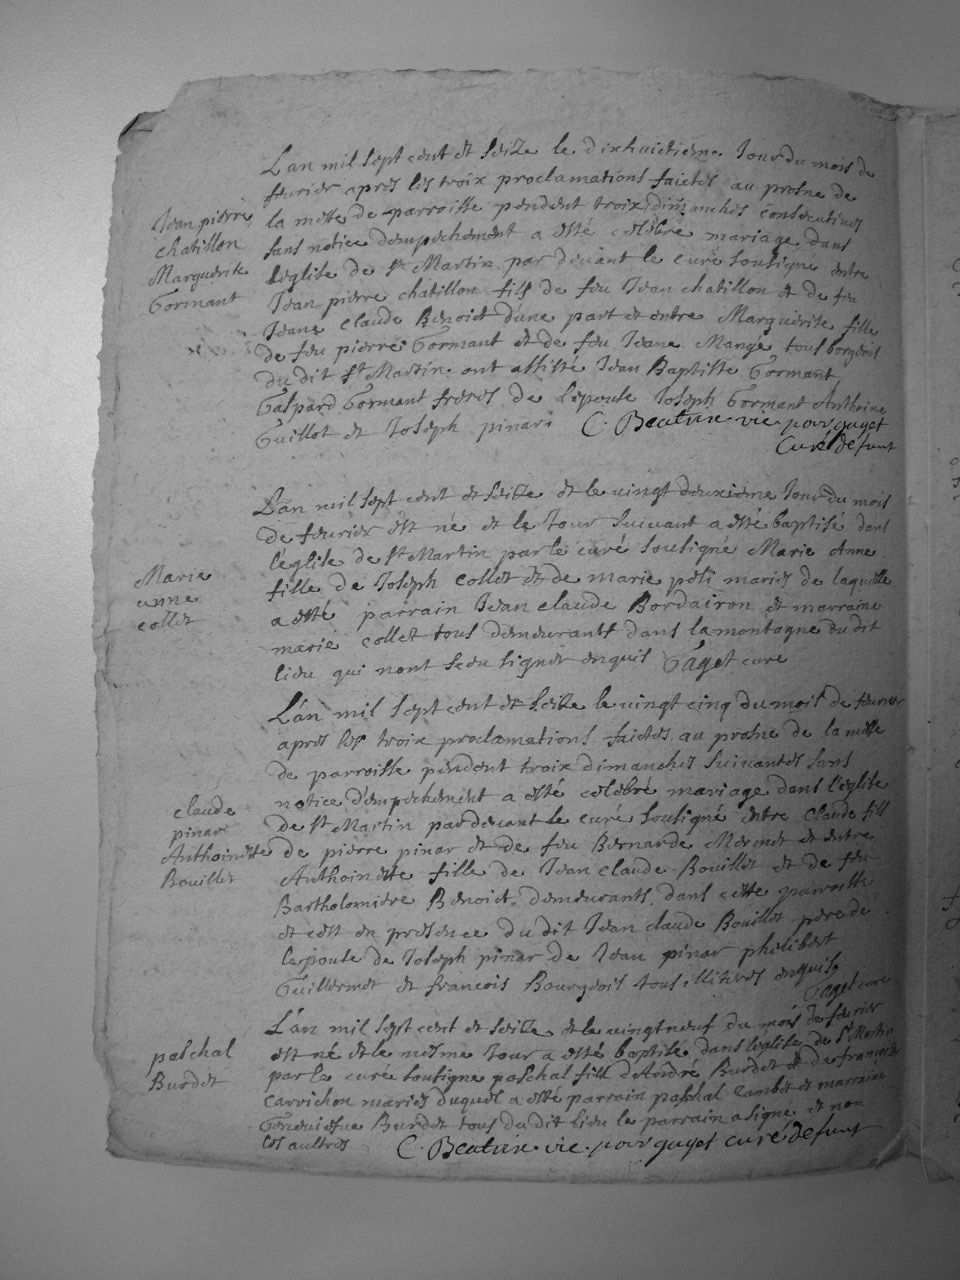 Jean pierre
chatillon
Marguerite
Gormant
L'an mil sept cent et seize le dixhuictieme Jour du mois de
feurier apres les troix proclamations faictes au prosne de
la messe de parroisse pendent troix dimanches consecutiues
sans notice dempechement a esté celebré mariage dans
l'eglise de st Martin par deuant le curé soubsigné entre
Jean pierre chatillon fils de feu Jean chatillon et de feu
Jeane Claude Benoict d'une part et entre Marguerite fille
de feu pierre Gormant et de feu Jeane Mange tous borgeois
du dit st Martin ont assisté Jean Baptiste Gormant
Gaspard Gormant freres de l'epouse Joseph Gormant Anthoine
Guillot et Joseph pinar C. Beatrix vic. pour guyot
Curé defunt
Marie
anne
collet
L'an mil sept cent et seize et le vingt deuxieme Jour du mois
de feurier est né et le Jour suiuant a esté baptisé dans
l'eglise de st Martin par le curé sousigné Marie Anne
fille de Joseph collet et de marie peti maries de laquelle
a esté parrain Jean claude Bordairon et marraine
marie collet tous demeurants dans la montagne du dit
lieu qui nont sceu signer enquis Gaget cure
claude
pinar
Anthoinette
Bouillet
L'an mil sept cent et seize le vingt cinq du mois de feurier
apres les troix proclamations faictes au prosne de la messe
de parroisse pendent troix dimanches suiuantes sans
notice d'empechement a esté celebré mariage dans l'eglise
de st Martin pardeuant le curé sousigné entre Claude fils
de pierre pinar et de feu Bernarde Mermet et entre
Anthoinette fille de Jean claude Bouillet et de feu
Bartholomiere Benoict demeurants dans cette parroisse
et cest en presence du dit Jean claude Bouillet pere de
lespouse de Joseph pinar de Jean pinar philibert
Guillermet et francois Bourgeois tous illiteres enquis
Gaget cure
paschal
Burdet
L'an mil sept cent et seize et le vingtneuf du mois de feurier
est né et le mesme Jour a esté baptisé dans l'eglise de st Martin
par le curé sousigne paschal fils d'Andre Burdet et de francoise
Carvichon maries duquel a esté parrain paschal Cambet et marraine
Geneuiefue Burdet tous du dit lieu le parrain a signe et non
les aultres C. Beatrix vic. pour guyot curé defunt